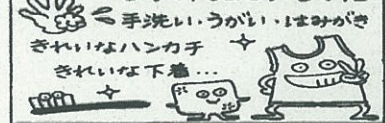 手洗い・うがい・はみがき
きれいなハンカチ
きれいな下着…